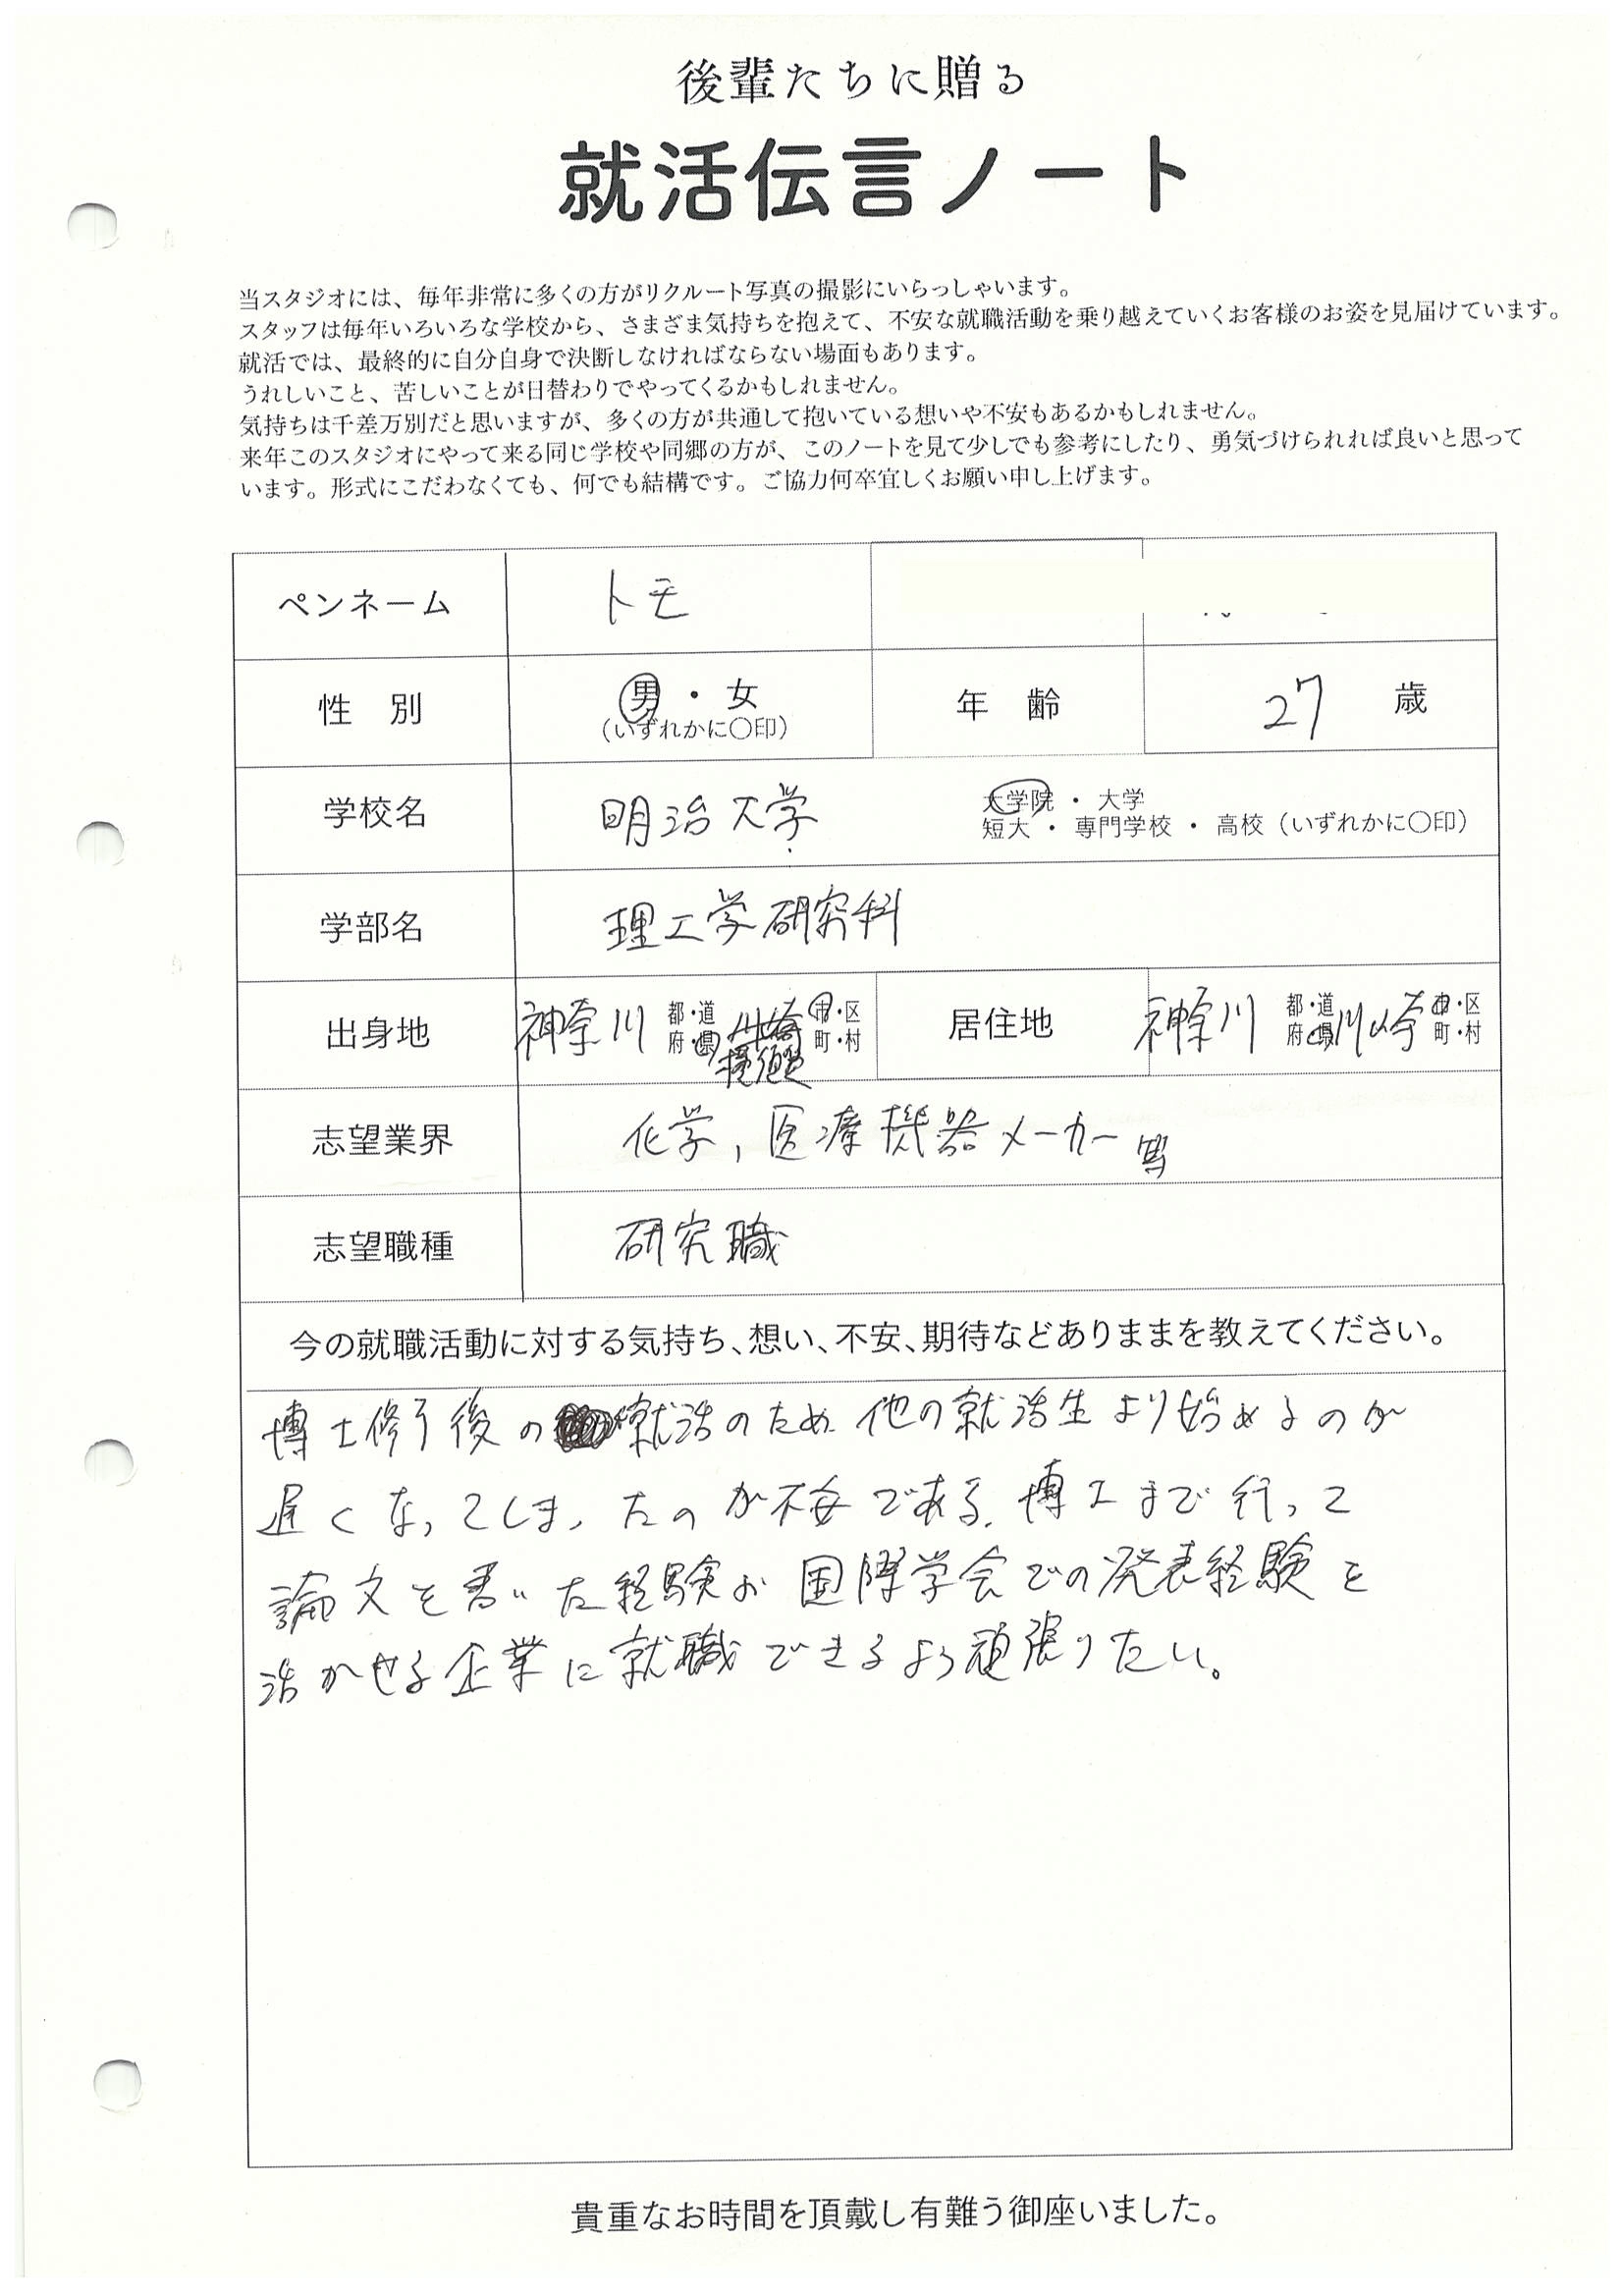 後輩たちに贈る
就活伝言ノート
当スタジオには、毎年非常に多くの方がリクルート写真の撮影にいらっしゃいます。
スタッフは毎年いろいろな学校から、さまざま気持ちを抱えて、不安な就職活動を乗り越えていくお客様のお姿を見届けています。
就活では、最終的に自分自身で決断しなければならない場面もあります。
うれしいこと、苦しいことが日替わりでやってくるかもしれません。
気持ちは千差万別だと思いますが、多くの方が共通して抱いている想いや不安もあるかもしれません。
来年このスタジオにやって来る同じ学校や同郷の方が、このノートを見て少しでも参考にしたり、勇気づけられれば良いと思って
います。形式にこだわなくても、何でも結構です。ご協力何卒宜しくお願い申し上げます。
ペンネーム トモ
性 別 男・女 (いずれかに〇印) 年 齢 27 歳
学校名 明治大学 大学院・大学
短大・専門学校・高校(いずれかに〇印)
学部名 理工学研究科
出身地 神奈川 都・道 府・県 横須賀 市・区 町・村 居住地 神奈川 都・道 府・県 川崎 市・区 町・村
志望業界 化学, 医療機器メーカー 等
志望職種 研究職
今の就職活動に対する気持ち、想い、不安、期待などありままを教えてください。
博士修了後の就活のため他の就活生より始めるのが
遅くなってしまったのが不安である。博士まで行って
論文を書いた経験や国際学会での発表経験を
活かせる企業に就職できるよう頑張りたい。
貴重なお時間を頂戴し有難う御座いました。